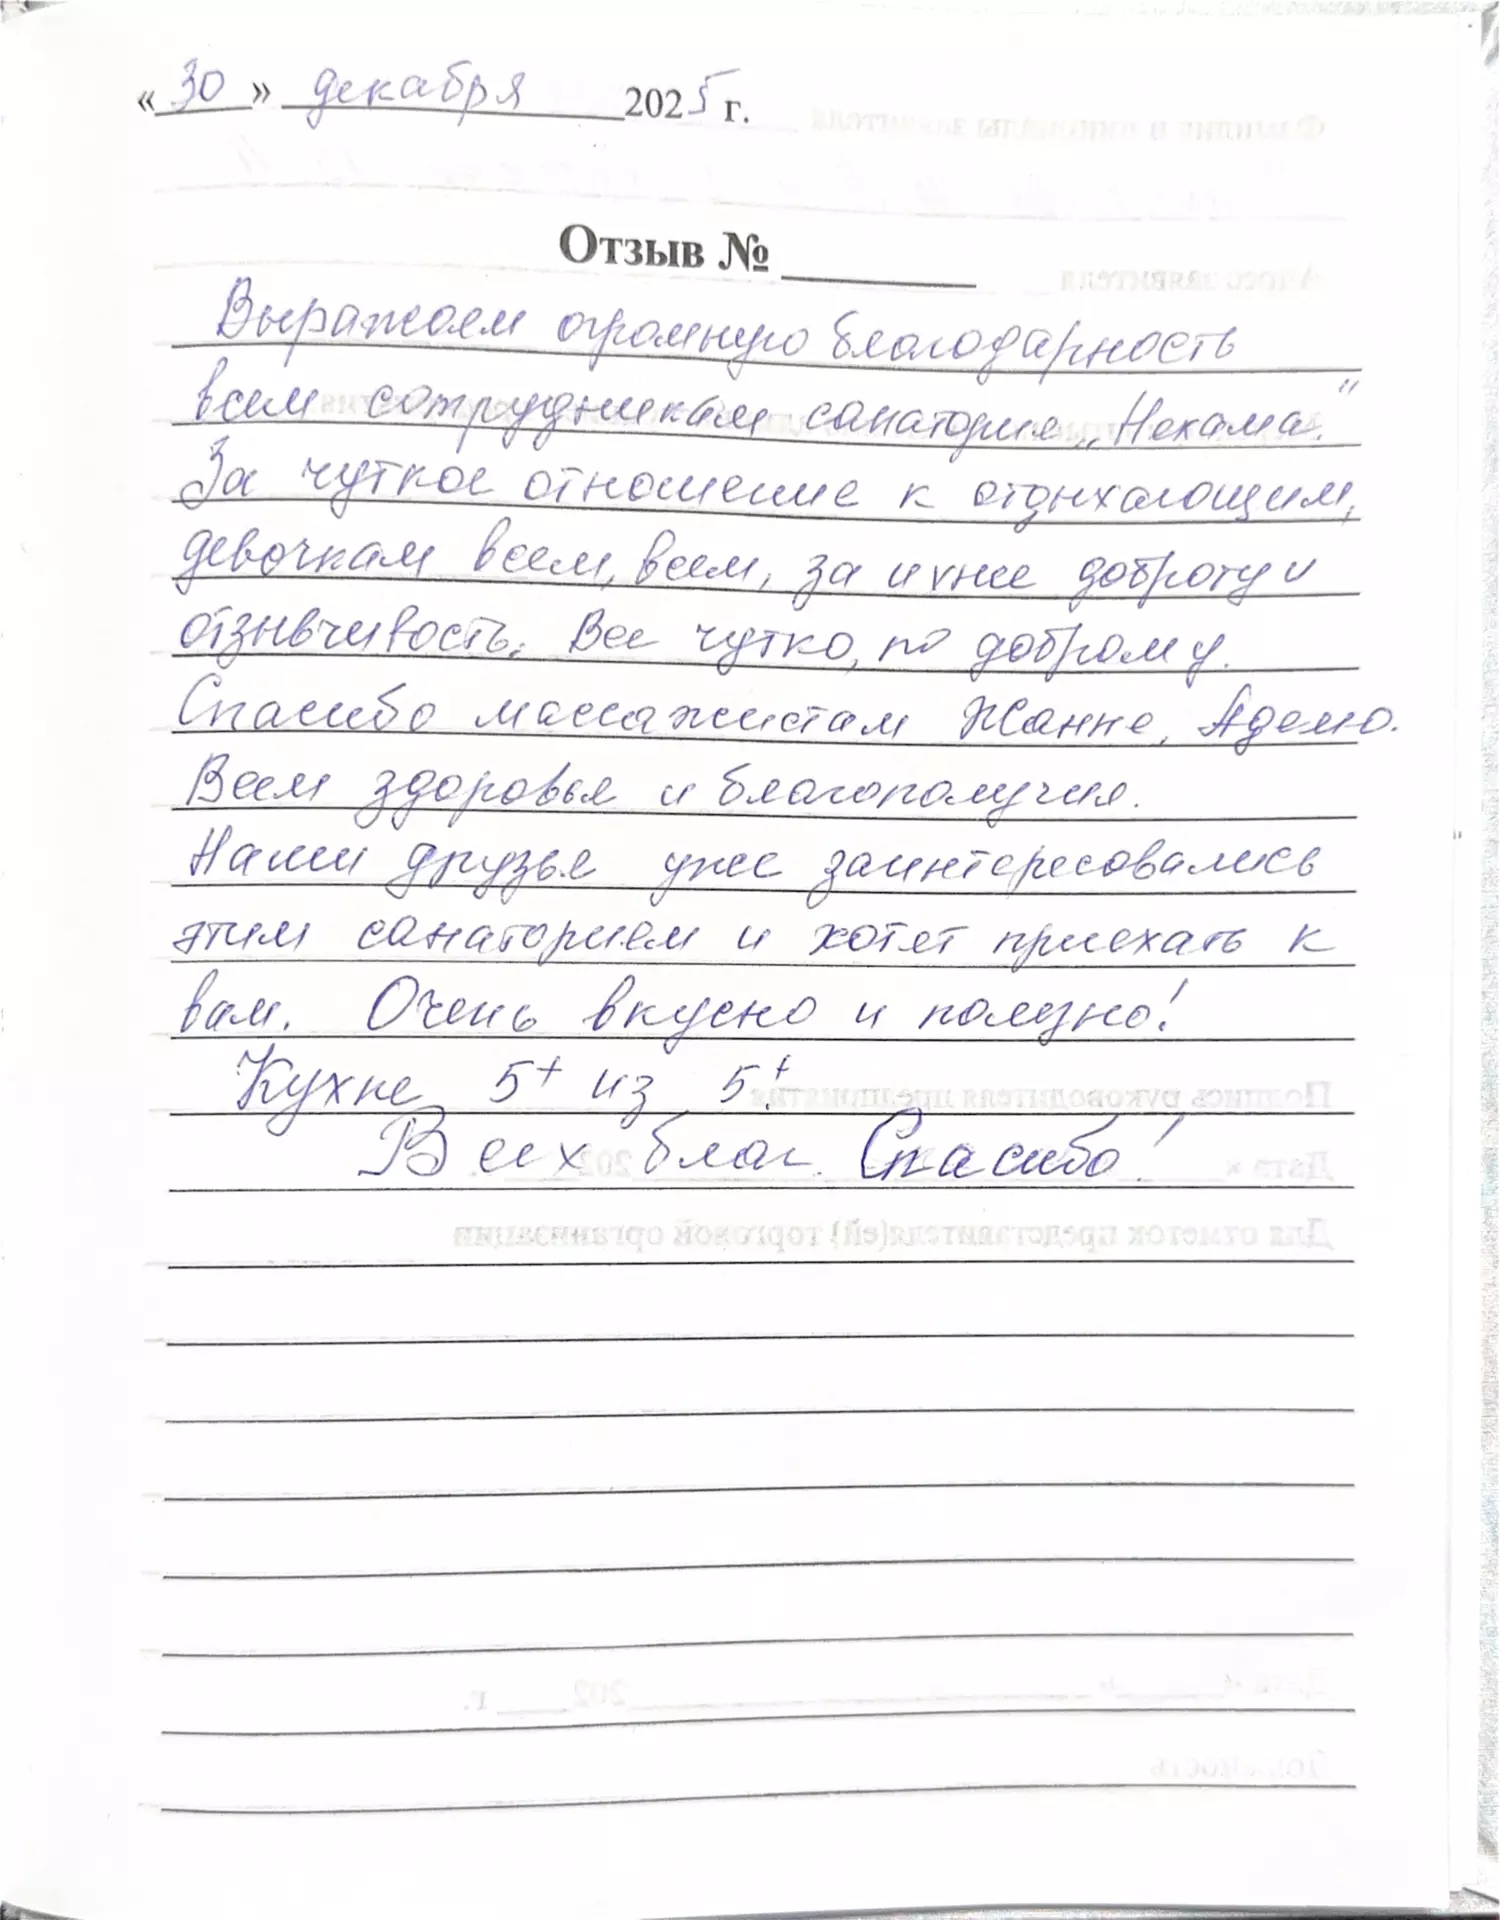 «30» декабря 2025 г.
Отзыв №
Выражаем огромную благодарность
всем сотрудникам санатория „Некама."
За чуткое отношение к отдыхающим,
девочкам всем, всем, за ихнее доброту и
отзывчивость. Все чутко, по доброму.
Спасибо массажистам Жанне, Аделю.
Всем здоровья и благополучия.
Наши друзья уже заинтересовались
этим санаторием и хотят приехать к
вам. Очень вкусно и полезно!
Кухне 5+ из 5+!
Всех благ. Спасибо!